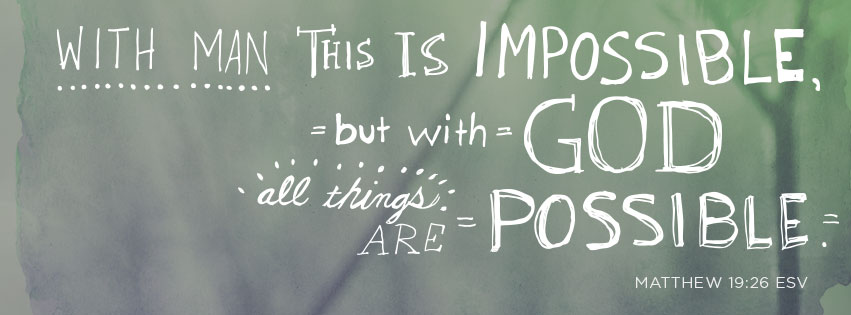 WITH MAN THIS IS IMPOSSIBLE,
= but with = GOD
all things
ARE = POSSIBLE. =
MATTHEW 19:26 ESV